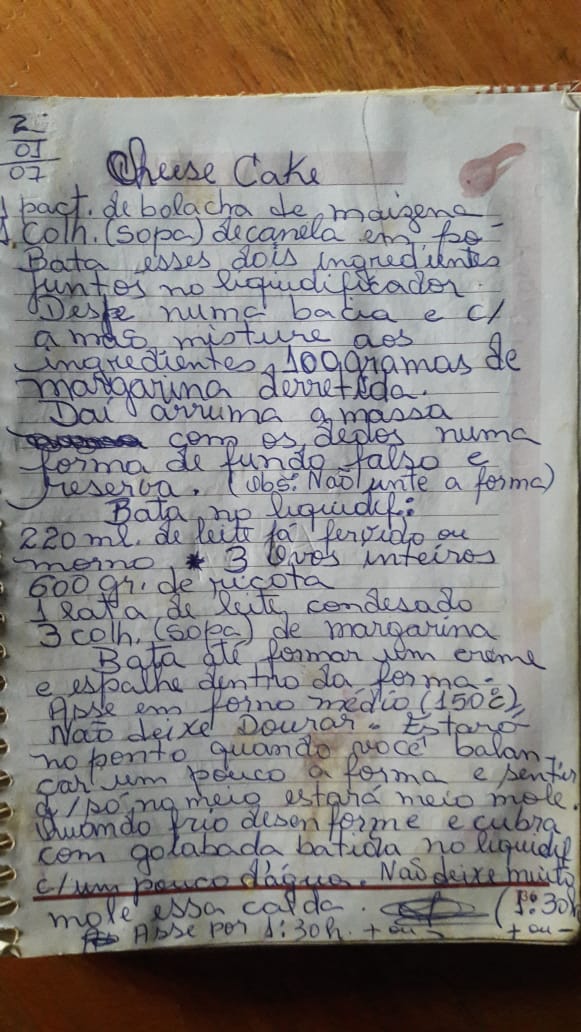 2
01
07
Cheese Cake
1 pact. de bolacha de maizena
1 Colh. (sopa) de canela em pó
Bata esses dois ingredientes
juntos no liquidificador.
Despe numa bacia e c/
a mão misture aos
ingredientes, 100 gramas de
margarina derretida.
Daí arruma a massa
com os dedos numa
forma de fundo falso e
reserva. (obs: Não unte a forma)
Bata no liquidif:
220 ml. de leite já fervido ou
morno * 3 Ovos inteiros
600 gr. de ricota
1 lata de leite condesado
3 colh. (sopa) de margarina
Bata até formar um creme
e espalhe dentro da forma.
Asse em forno médio (150°c),
Não deixe Dourar. Estará
no ponto quando você balan-
çar um pouco a forma e sentir
q/ só no meio estará meio mole.
Quando frio desenforme e cubra
com goiabada batida no liquidif
c/ um pouco d'água. Não deixe muito
mole essa calda. (1:30h
Asse por 1:30h. + ou - + ou -